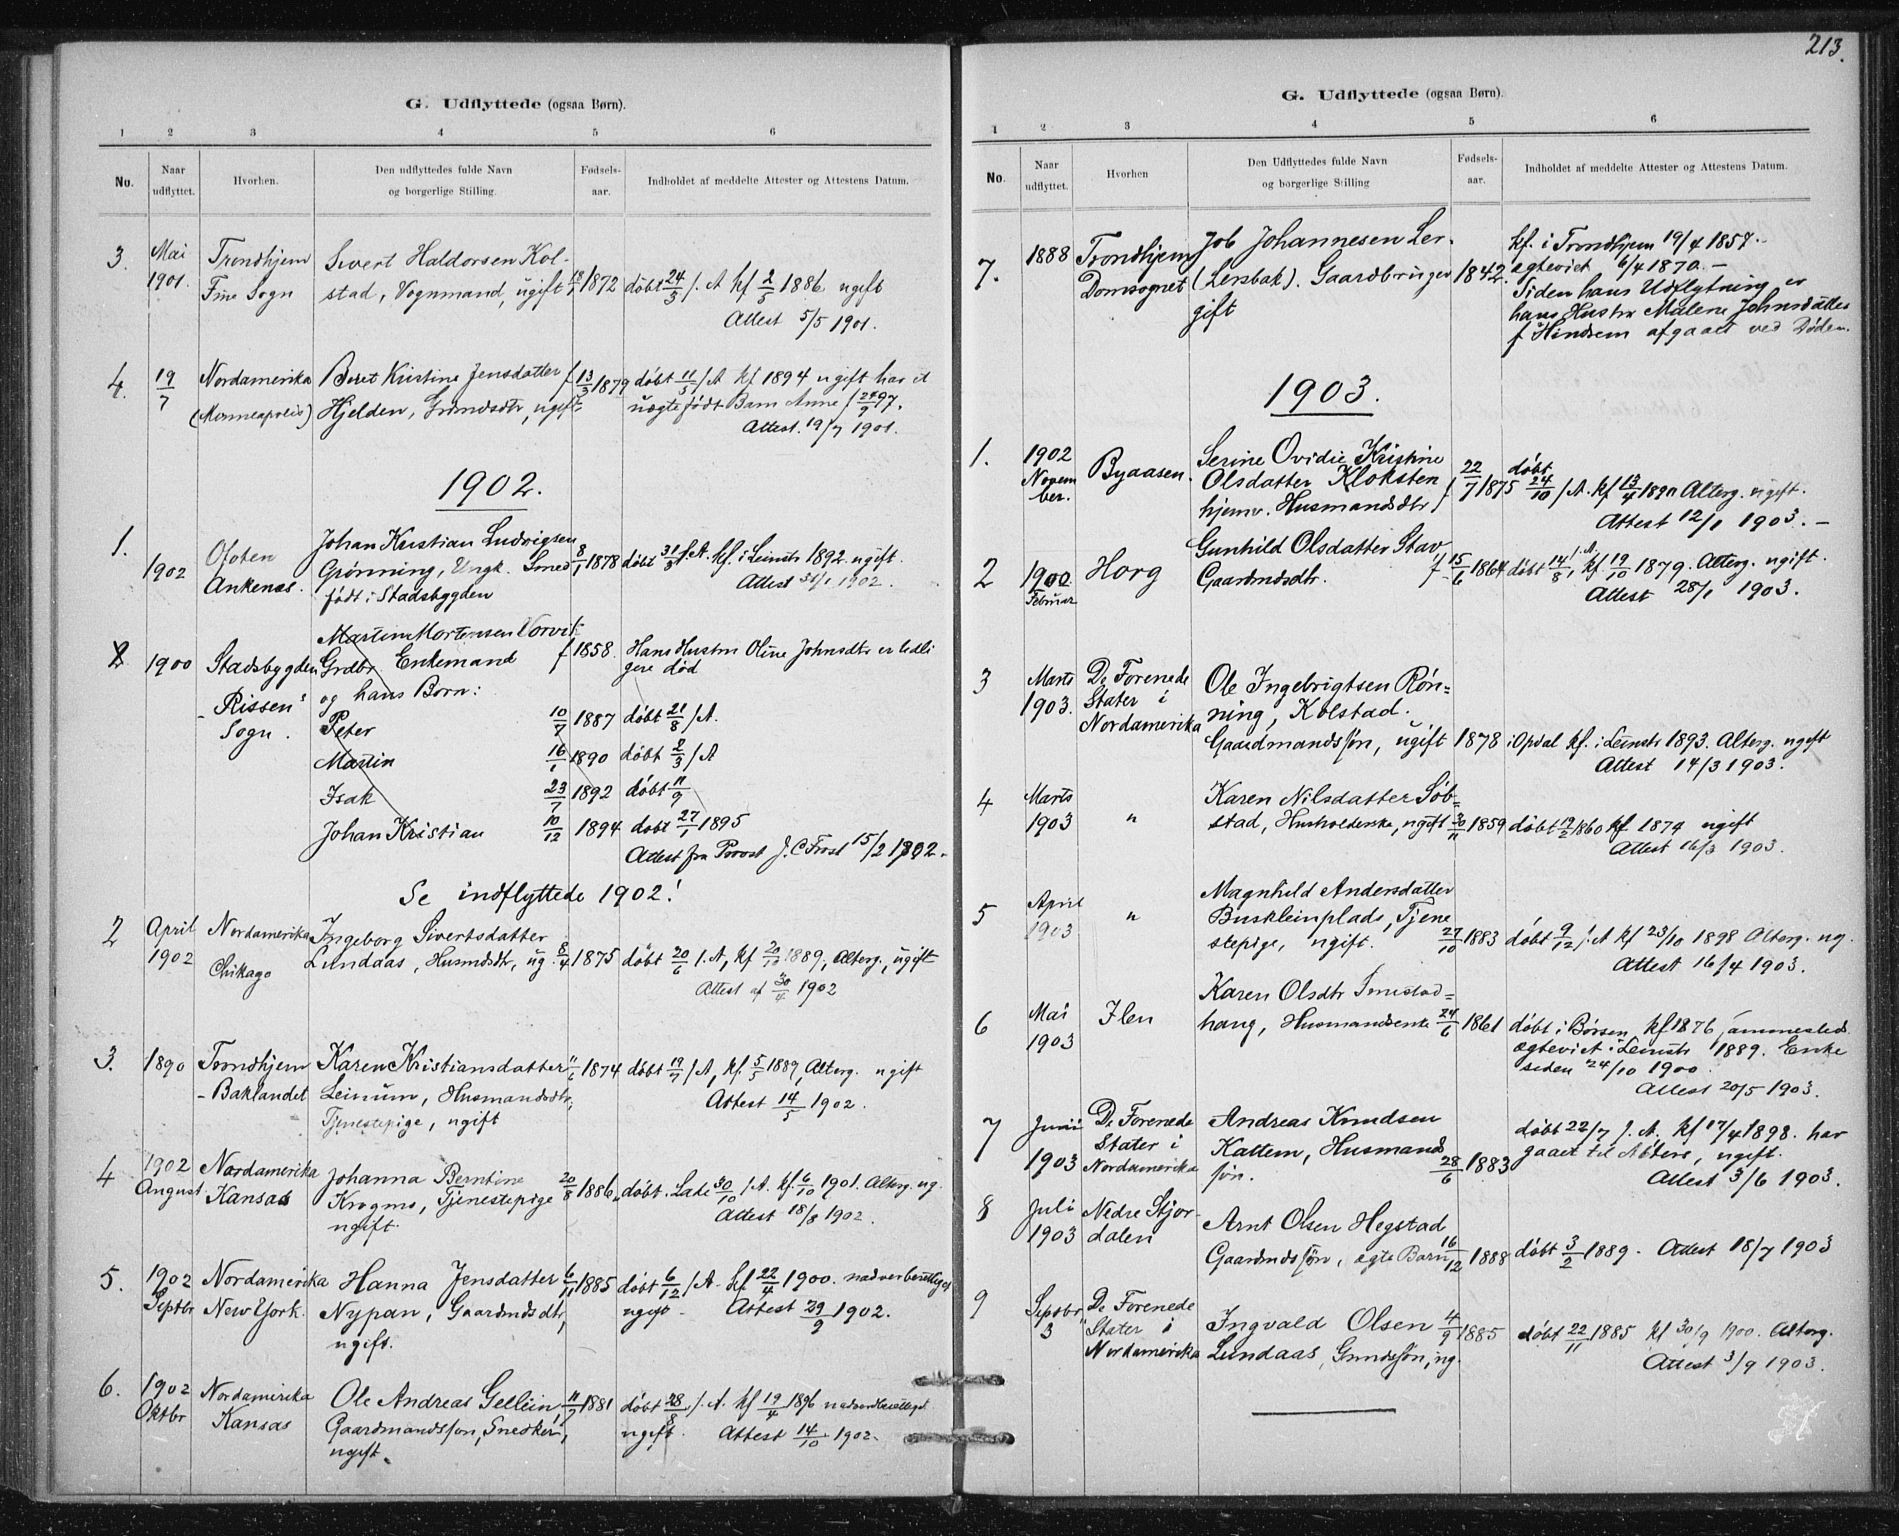 G. Udflyttede (ogsaa Børn).
1 2 3 4 5 6
No. Naar udflyttet. Hvorhen. Den udflyttedes fulde Navn og borgerlige Stilling. Fødsels-aar. Indholdet af meddelte Attester og Attestens Datum.
3. Mai Trondhjem Sivert Haldorsen Kol-
1901. Frue Sogn stad, Vognmand, ugift 1872 døbt 24/3 /. A kf 2/5 1886 ugift
Attest 5/5 1901.
4. 19/7 Nordamerika Beret Kristine Jensdatter f 13/3 1879 døbt 11/5 /. A kf 1894 ugift har et
(Minneapolis) Hjelden, Grdmdsdtr, ugift uægte født Barn Anne f 24/9 97.
Attest. 19/7 1901.
1902.
1. Johan Kristian Ludvigsen
1902 Ofoten Grønning, Ungk. Smed 8/1 1878 døbt 31/3 /. A. kf. i Leinstr 1892. ugift.
Ankenes. født i Stadsbygden Attest 31/1 1902.
Martin Mortensen Vorvik
2 1900 Stadsbygden Grdbr. Enkemand f 1858. Hans Hustru Oline Johnsdtr er tidli
gere død
- Rissens og hans Børn:
Sogn. Peter 10/7 1887 døbt 21/8 /. A.
Martin 16/1 1890 døbt 2/3 /. A
Isak 23/7 1892 døbt 11/9
Johan Kristian 10/12 1894 døbt 27/1 1895
Attest fra Provst J. C Frost 15/2 1902.
Se indflyttede 1902!
2 April Nordamerika Ingeborg Sivertsdatter
1902 Chikago Lundaas, Husmdsdtr, ug. 8/4 1875 døbt 20/6 /. A, kf 20/10 1889, Alterg., ugift
Attest af 30/4 1902
3. 1890 Trondhjem Karen Kristiansdatter 11/6 1874 døbt 19/7 /. A, kf. 5/5 1889, Alterg. ugift
- Baklandet Leinum, Husmandsdtr, Attest 14/5 1902.
Tjenestepige, ugift
4 1902 Nordamerika Johanna Berntine
August Kansas Krogmo, Tjenestepige 20/8 1886, døbt i Lade 30/10 /. A. kf. 6/10 1901. Alterg. ug.
ugift. Attest 18/8 1902.
5. 1902 Nordamerika Hanna Jensdatter 6/11 1885 døbt 6/12 /. A. kf 22/4 1900. nadverberettiget
Septbr New York. Nypan, Gaardmdsdtr, ugift. Attest 29/9 1902.
ugift.
6. 1902 Nordamerika Ole Andreas Gellein 11/7 1881 døbt 28/8 /. A. kf 19/4 1896 nadverdberettiget
Oktbr Kansas Gaardmandssøn, Snedker, ugift. Attest 14/10 1902.
ugift.
213.
G. Udflyttede (ogsaa Børn).
1 2 3 4 5 6
No. Naar udflyttet. Hvorhen Den Udflyttedes fulde Navn og borgerlige Stilling Fødsels-aar. Indholdet af meddelte Attester og Attestens Datum.
7. 1888 Trondhjem Job Johannesen Ler- kf. i Trondhjem 19/4 1857.
Domsognet (Lersbak). Gaardbruger 1842. egteviet 6/4 1870. -
gift Siden hans Udflytning er
hans Hustru Malene Johnsdatter
f Hindsem afgaaet ved Døden.
1903.
1. 1902 Byaasen. Serine Ovidie Kristine
Novem Olsdatter Kloksten f 22/7 1875 døbt 24/10 /. A. kf 13/4 1890 Alterg. ugift.
ber. hjemv. Husmandsdtr Attest 12/1 1903. -
2 1900 Horg Gunhild Olsdatter Stav
Februar Gaardmdsdtr. f 15/6 1864 døbt 14/8 /. A. kf 19/10 1879. Alterg. ugift.
Attest 28/1 1903.
3 Marts De Forenede Ole Ingebrigtsen Røn-
1903. Stater i ning, Kolstad.
Nordamerika Gaardmandssøn, ugift 1878 i Opdal kf. i Leinstr 1893. Alterg. ugift
Attest 14/3 1903.
4 Marts Karen Nilsdatter Søb-
1903 " stad, Husholderske, ugift 30/11 1859 døbt 19/2 1860 kf 1874 ugift
Attest 16/3 1903.
5 April Magnhild Andersdatter
1903 " Buskleinplads, Tjene
stepige, ugift. 27/10 1883 døbt 9/12 /. A kf 23/10 1898 Alterg. ug.
Attest 16/4 1903.
6 Mai Ilen Karen Olsdtr Smestad-
1903 haug, Husmandsenke 24/6 1861 døbt i Børsen kf 1876 sammesteds
egteviet i Leinstr 1889. Enke
siden 24/10 1900.
Attest 20/5 1903.
7 Juni De Forenede Andreas Knudsen døbt 22/7 /. A. kf 17/4 1898. har
1903 Stater i Kattem, Husmands gaaet til Alters, ugift.
Nordamerika søn. 28/6 1883 Attest 3/6 1903.
8 Juli Nedre Stjør- Arnt Olsen Hegstad
1903 dalen Gaardmdssøn, egte Barn 16/12 1888 døbt 3/2 1889. Attest 18/7 1903
9 Septbr De Forenede
3 Stater i Ingvald Olsen 4/9 1885 døbt 22/11 1885 kf 30/9 1900. Alterg.
Nordamerika Lundaas, Grmdssøn, ug. Attest 3/9 1903.